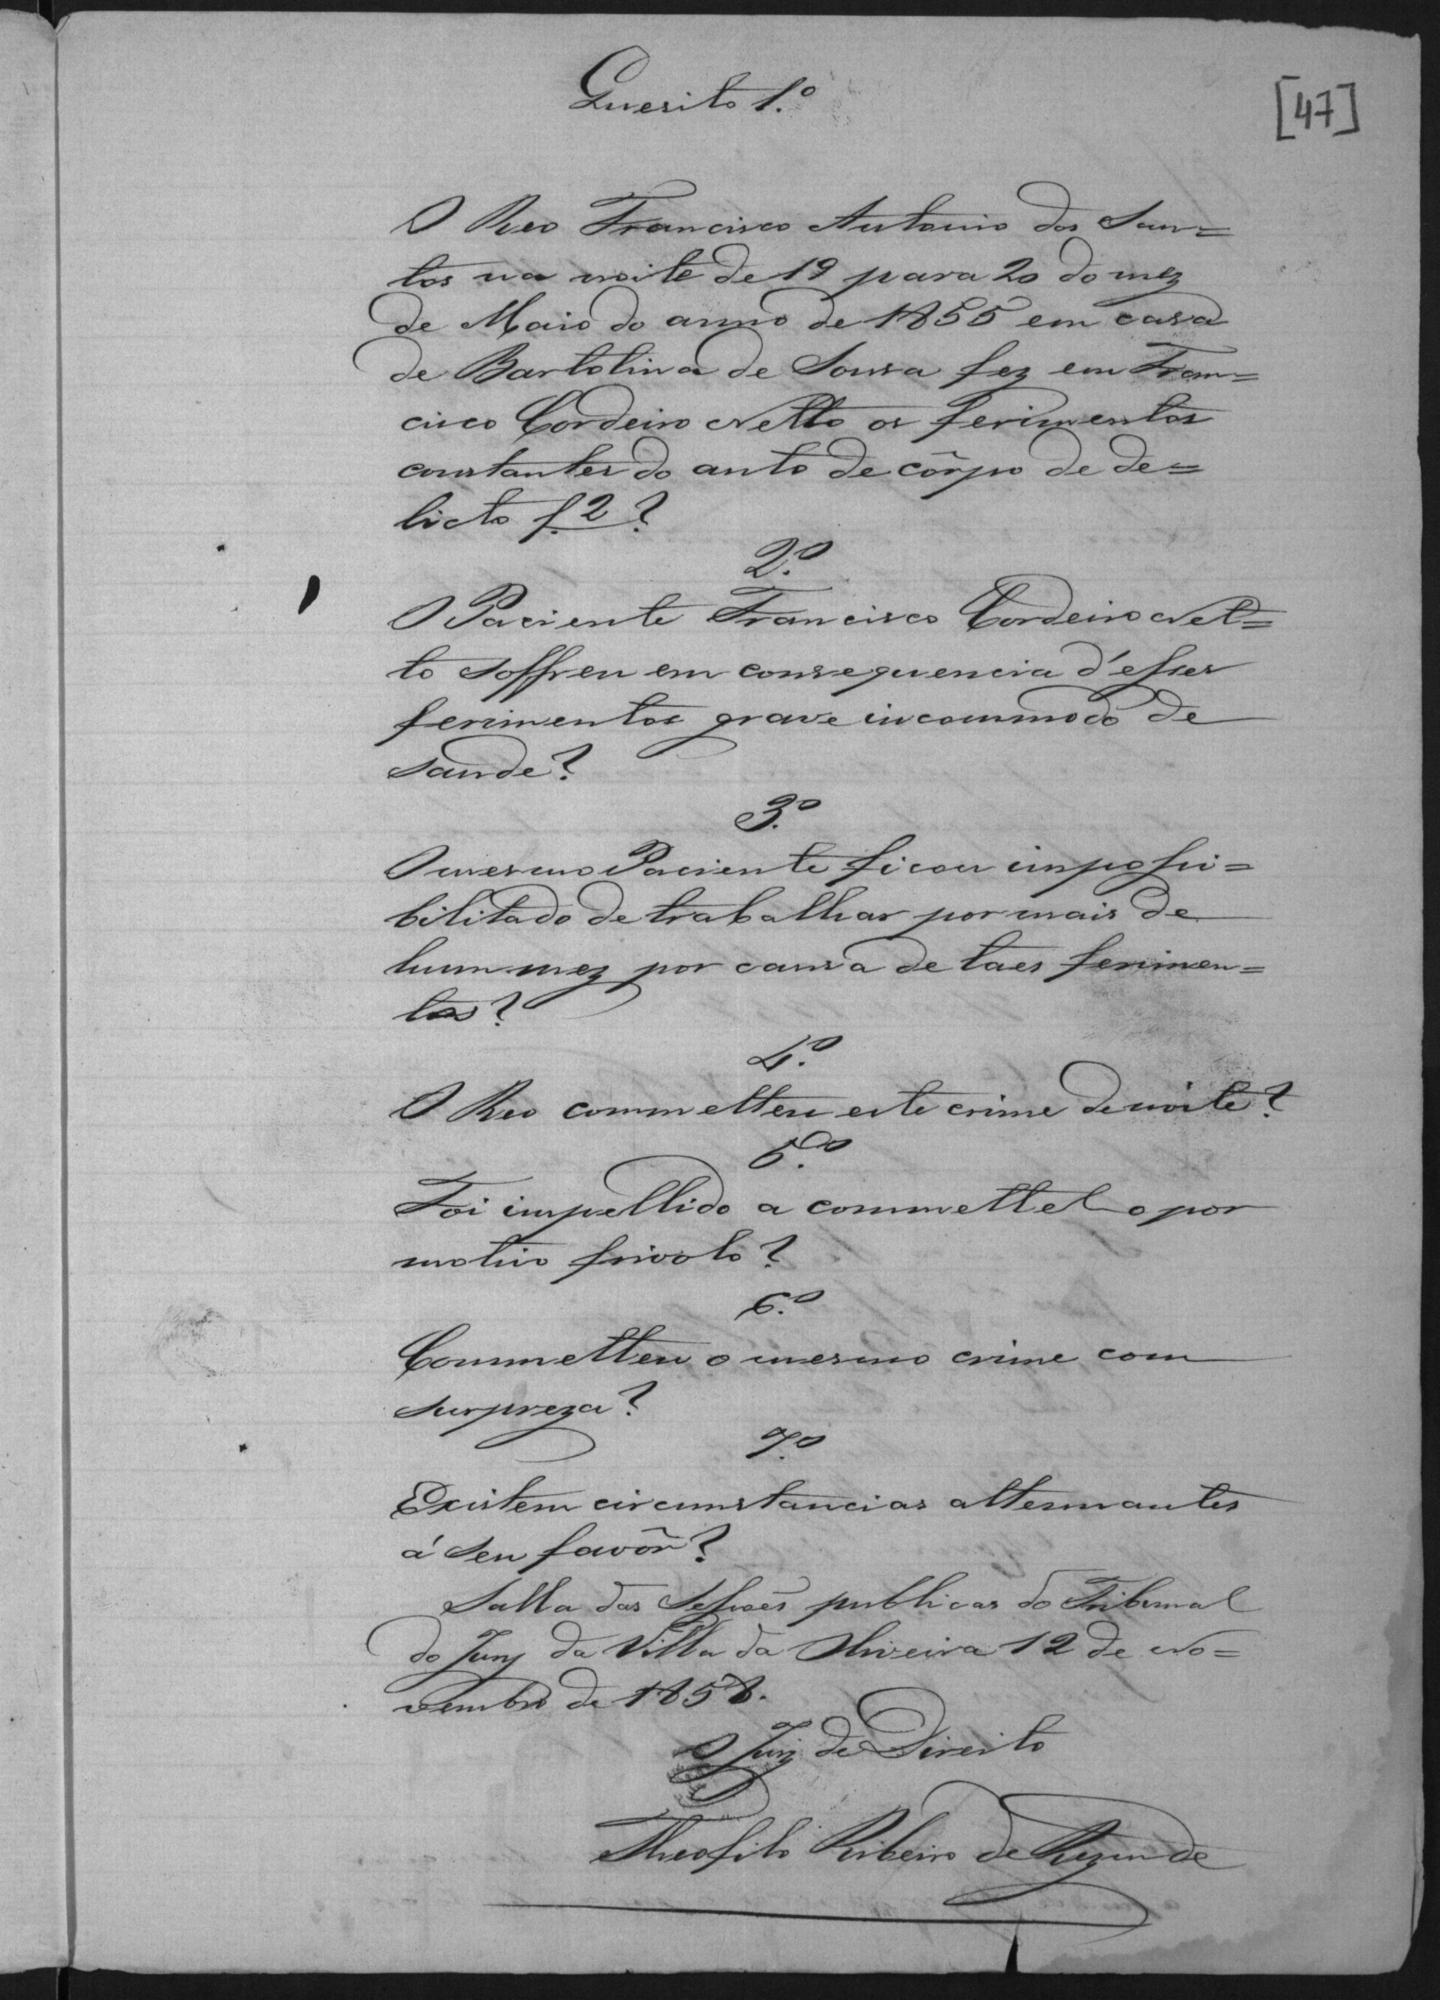 Quesito 1.º
[47]
O Reo Francisco Antonio dos San=
tos na noite de 19 para 20 do mez
de Maio do anno de 1855 em casa
de Bartolina de Sousa fez em Fran=
cisco Cordeiro Netto os ferimentos
constantes do auto de côrpo de de=
licto f. 2?
2.º
O Paciente Francisco Cordeiro Net=
to soffreu em consequencia d'esses
ferimentos grave incommodo de
saude?
3.º
O mesmo Paciente ficou impossi=
bilitado de trabalhar por mais de
hum mez por causa de taes ferimen=
tos?
4.º
O Reo commetteu este crime de noite?
5.º
Foi impellido a commettel o por
motivo frivolo?
6.º
Commetteu o mesmo crime com
surpreza?
7.º
Existem circumstancias attenuantes
á seu favôr?
Salla das Sessoẽs publicas do Tribunal
do Jury da Villa da Oliveira 12 de No=
vembro de 1858.
O Juiz de Direito
Theofilo Ribeiro de Rezende